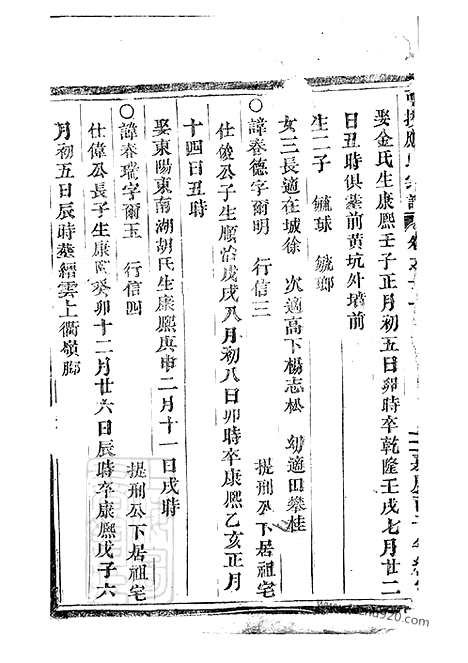 娶金氏生康熙壬子正月初五日卯時卒乾隆壬戌七月廿二
日丑時俱塟前黄坑外墻前
生二子　毓球　毓瑯
女三長適在城徐　次適高下楊志松　幼適田攀桂
○諱春德字爾明　行信三　提刑公下居祖宅
仕俊公子生順治戊戌八月初八日卯時卒康熙乙亥正月
十四日丑時
娶東陽東南湖胡氏生康熙庚申二月十一日戌時
○諱春瑞字爾玉　行信四　提刑公下居祖宅
仕偉公長子生康熙癸卯十二月廿六日辰時卒康熙戊子六
月初五日辰時塟縉雲上衢嶺脚